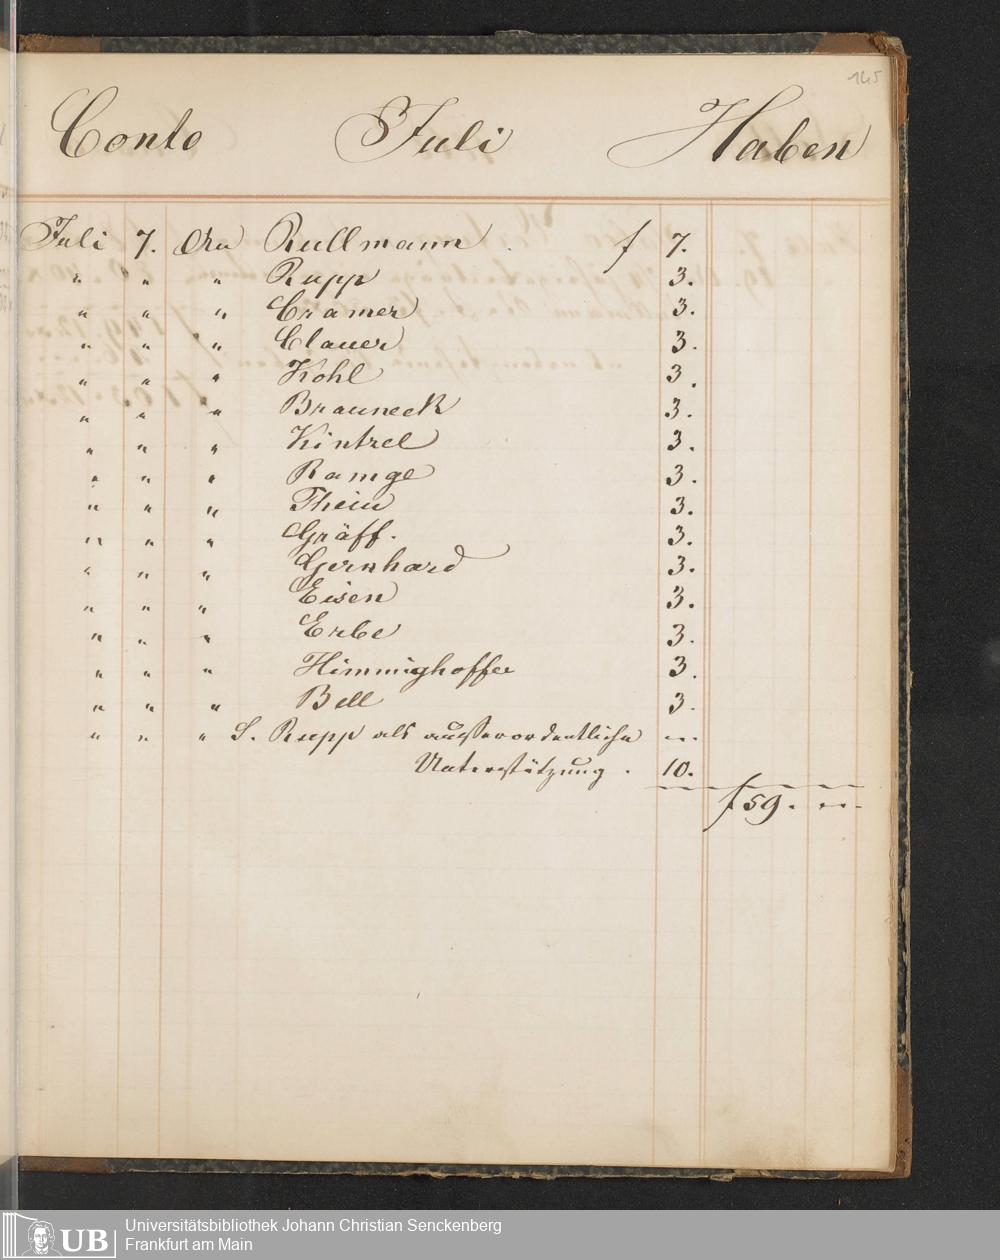 145
Conto Juli Haben
Juli 7. An Rullmann . f 7.
" " " Rupp 3.
" " " Cramer 3.
" " " Clauer 3.
" " " Kohl 3.
" " " Brauneck 3.
" " " Kintzel 3.
" " " Ramge 3.
" " " Thein 3.
" " " Gräff. 3.
" " " Gernhard 3.
" " " Eisen 3.
" " " Erbe 3.
" " " Himmighoffer 3.
" " " Bell 3.
" " " S. Rupp als ausserordentliche
Unterstützung . 10.
f 59. "
Universitätsbibliothek Johann Christian Senckenberg
UB Frankfurt am Main